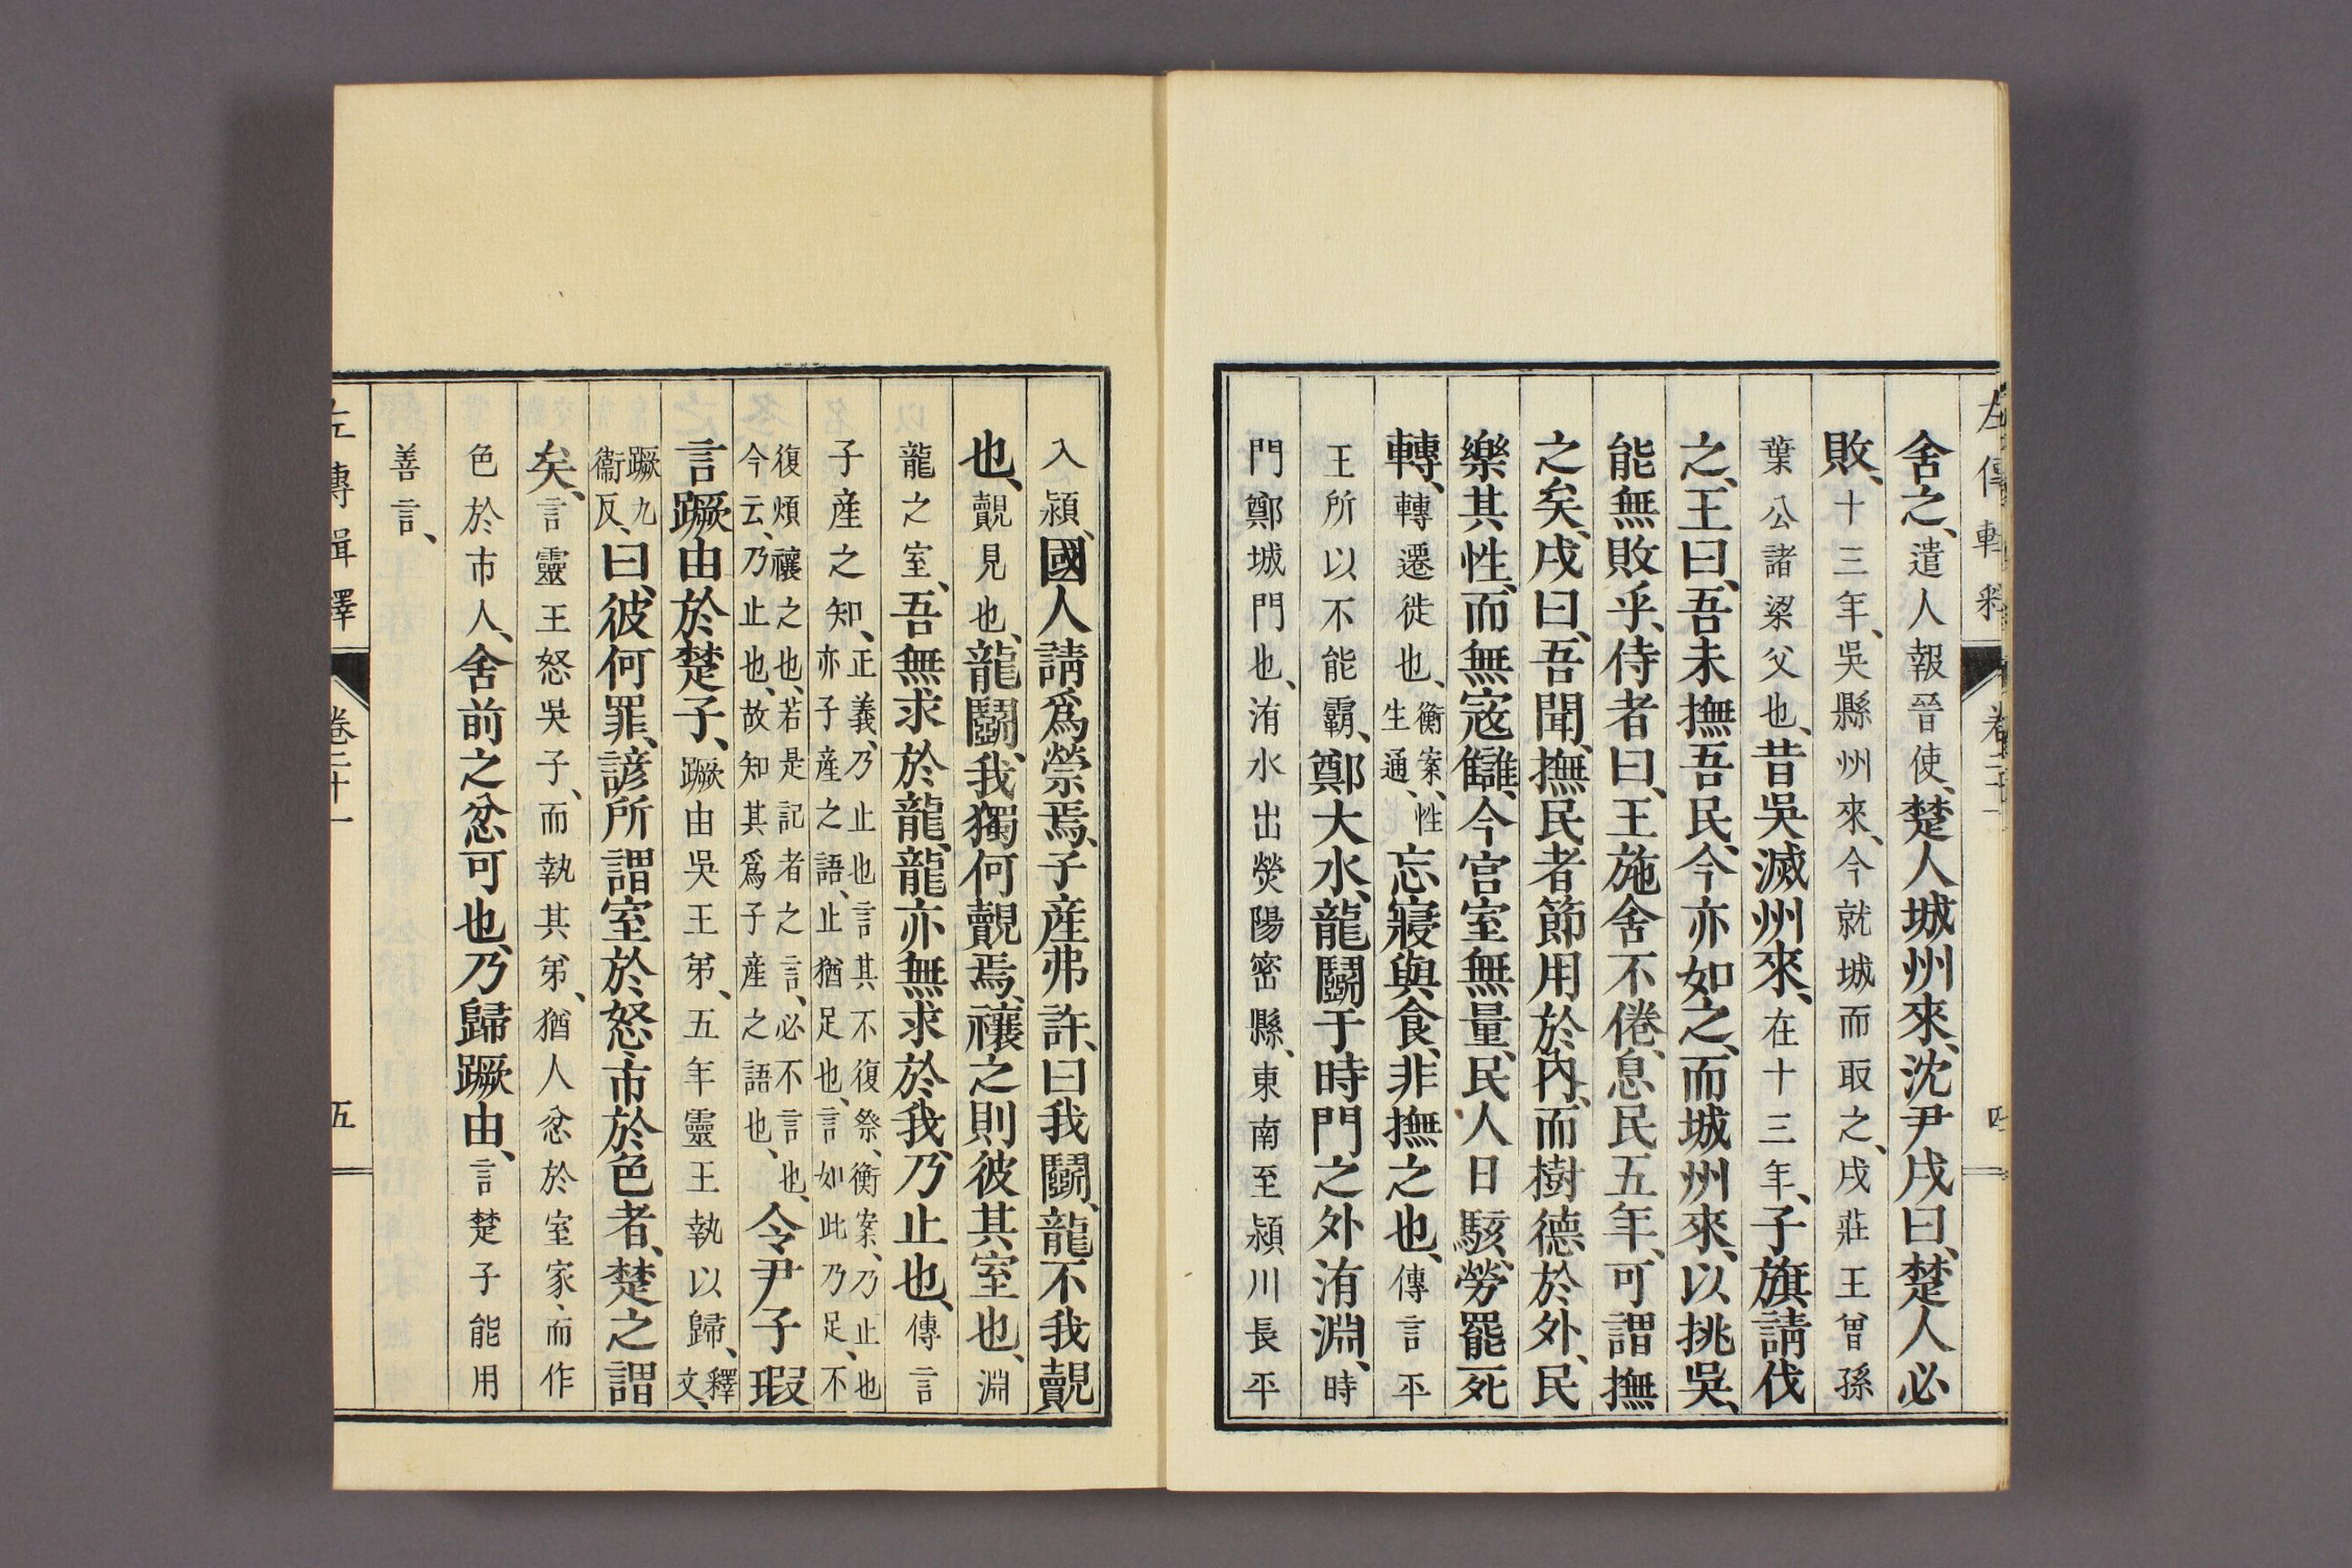 左傳輯釋 卷二十一 四
舍之、遣人報晉使、楚人城州來、沈尹戌曰、楚人必
敗、十三年、吳縣州來、今就城而取之、戌莊王曾孫
葉公諸梁父也、昔吳滅州來、在十三年、子旗請伐
之、王曰、吾未撫吾民、今亦如之、而城州來、以挑吳、
能無敗乎、侍者曰、王施舍不倦、息民五年、可謂撫
之矣、戌曰、吾聞、撫民者節用於內、而樹德於外、民
樂其性、而無寇讎、今宮室無量、民人日駭、勞罷死
轉、轉遷徙也、衡案、性生通、忘寢與食、非撫之也、傳言平
王所以不能霸、鄭大水、龍鬭于時門之外洧淵、時
門鄭城門也、洧水出熒陽密縣、東南至潁川長平
入潁、國人請爲禜焉、子產弗許、曰我鬭、龍不我覿
也、覿見也、龍鬭、我獨何覿焉、禳之則彼其室也、淵
龍之室、吾無求於龍、龍亦無求於我、乃止也、傳言
子產之知、正義、乃止也言其不復祭、衡案、乃止也亦子產之語、止猶足也、言如此乃足、不
復煩禳之也、若是記者之言、必不言也、今云、乃止也、故知其爲子產之語也、令尹子瑕
言蹶由於楚子、蹶由吳王弟、五年靈王執以歸、釋文、
蹶九衞反、曰、彼何罪、諺所謂室於怒、市於色者、楚之謂
矣、言靈王怒吳子、而執其弟、猶人忿於室家、而作
色於市人、舍前之忿可也、乃歸蹶由、言楚子能用
善言、
左傳輯釋 卷二十一 五